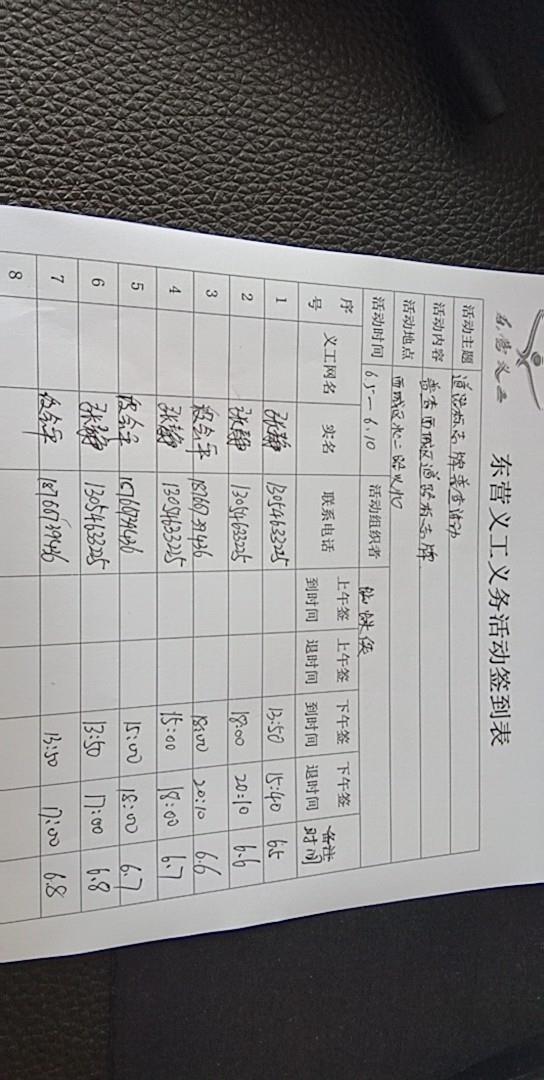 东营义工
东营义工义务活动签到表
活动主题 道路标志牌普查活动
活动内容 普查西城区道路标志牌
活动地点 西城区
活动时间 6.5—6.10 活动组织者
序号 义工网名 实名 联系电话 上午签到时间 上午签退时间 下午签到时间 下午签退时间 备注 时间
1 张静 13054633225 13:50 15:40 6.5
2 张静 13054633225 18:00 20:10 6.6
3 18:00 20:10 6.6
4 张静 13054633225 15:00 18:00 6.7
5 15:00 18:00 6.7
6 张静 13054633225 13:50 17:00 6.8
7 13:50 17:00 6.8
8